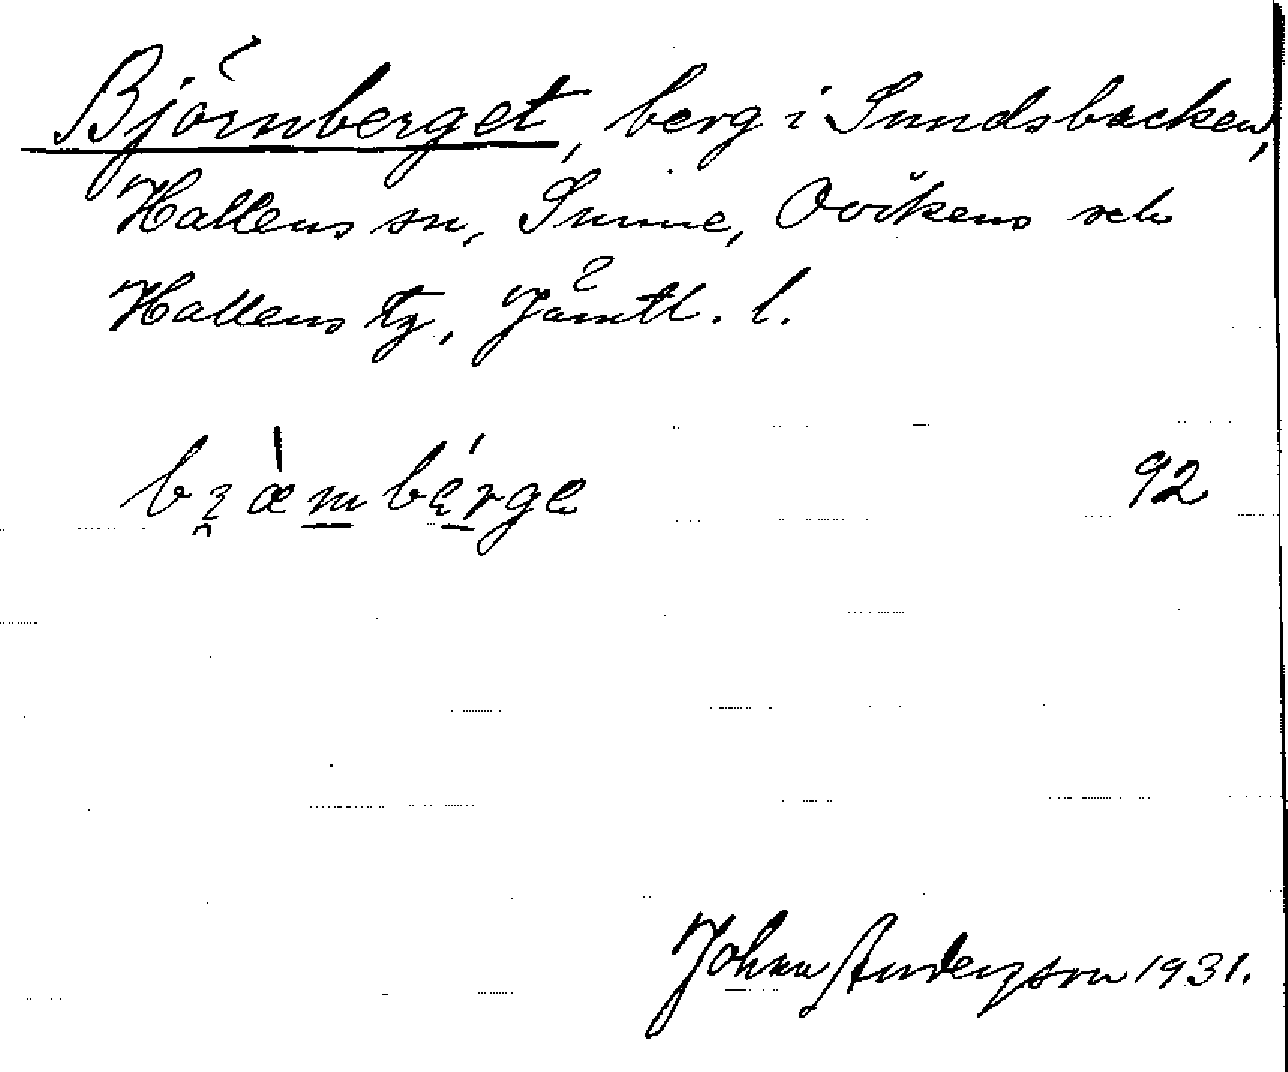 Björnberget, berg i Sundsbacken,
Hallens sn, Sunne, Ovikens och
Hallens tg, Jämtl. l.
92
John Andersson 1931.